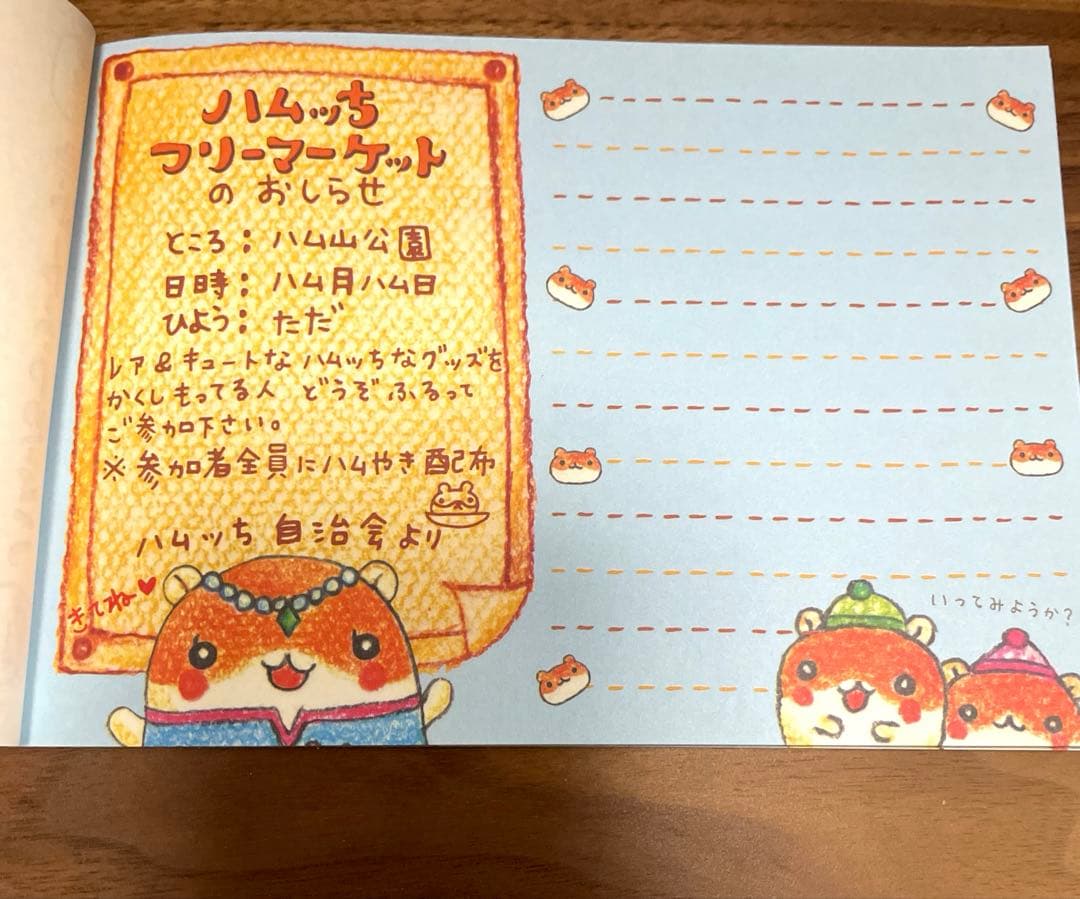 ハムッち
フリーマーケット
の おしらせ
ところ: ハム山公園
日時: ハム月ハム日
ひよう: ただ
レア&キュートな ハムッちなグッズを
かくしもってる人 どうぞ ふるって
ご参加下さい。
※参加者全員にハムやき配布
ハムッち 自治会より
きてね♥
いってみようか?